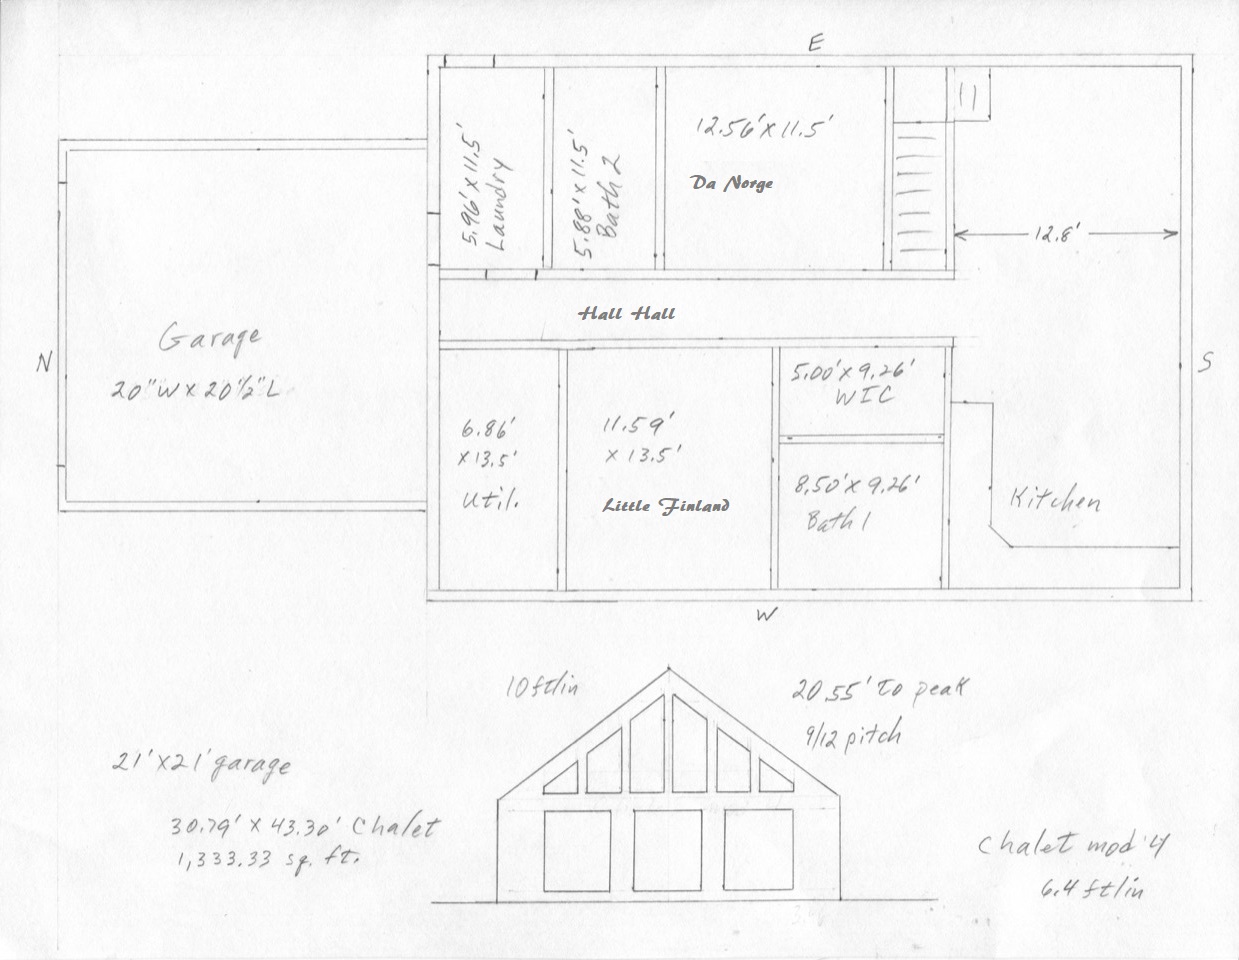 E
5.96' x 11.5'
Laundry
5.88' x 11.5'
Bath 2
12.56' x 11.5'
Da Norge
12.8'
Hall Hall
N
Garage
20" W x 20 1/2" L
S
6.86'
x 13.5'
Util.
11.59'
x 13.5'
Little Finland
5.00' x 9.26'
WIC
8.50' x 9.26'
Bath 1
Kitchen
W
10 ft/in
20.55' to peak
9/12 pitch
21' x 21' garage
30.79' x 43.30' Chalet
1,333.33 sq. ft.
Chalet mod 4
6.4 ft/in